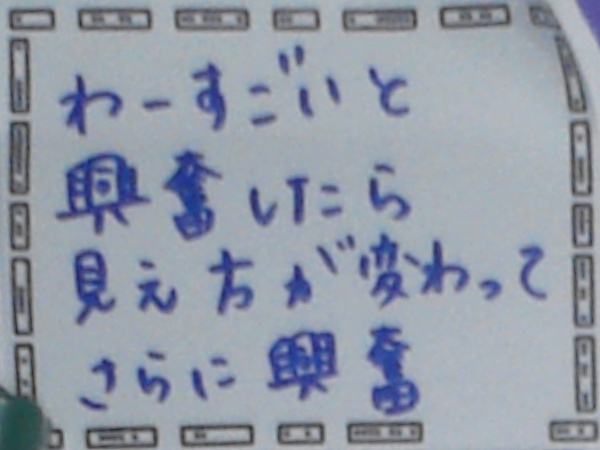 わーすごいと
興奮したら
見え方が変わって
さらに興奮